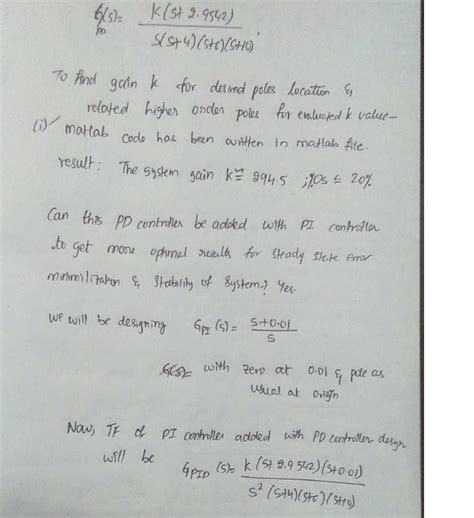 G(s)= K(s+2.9542)
PD S(s+4)(s+6)(s+10)
To find gain k for desired poles location &
related higher order poles for evaluated k value-
(i) matlab code has been written in matlab file.
result: The system gain k≅ 294.5 ;%Os ≤ 20%
Can this PD controller be added with PI controller
to get more optimal results for steady state error
minimilization & stability of system? Yes.
We will be designing GPI(s) = s+0.01
S
G(s)= with zero at 0.01 & pole as
usual at origin
Now, TF of PI controller added with PD controller design
will be GPID(s)= k(s+2.9542)(s+0.01)
s²(s+4)(s+6)(s+10)